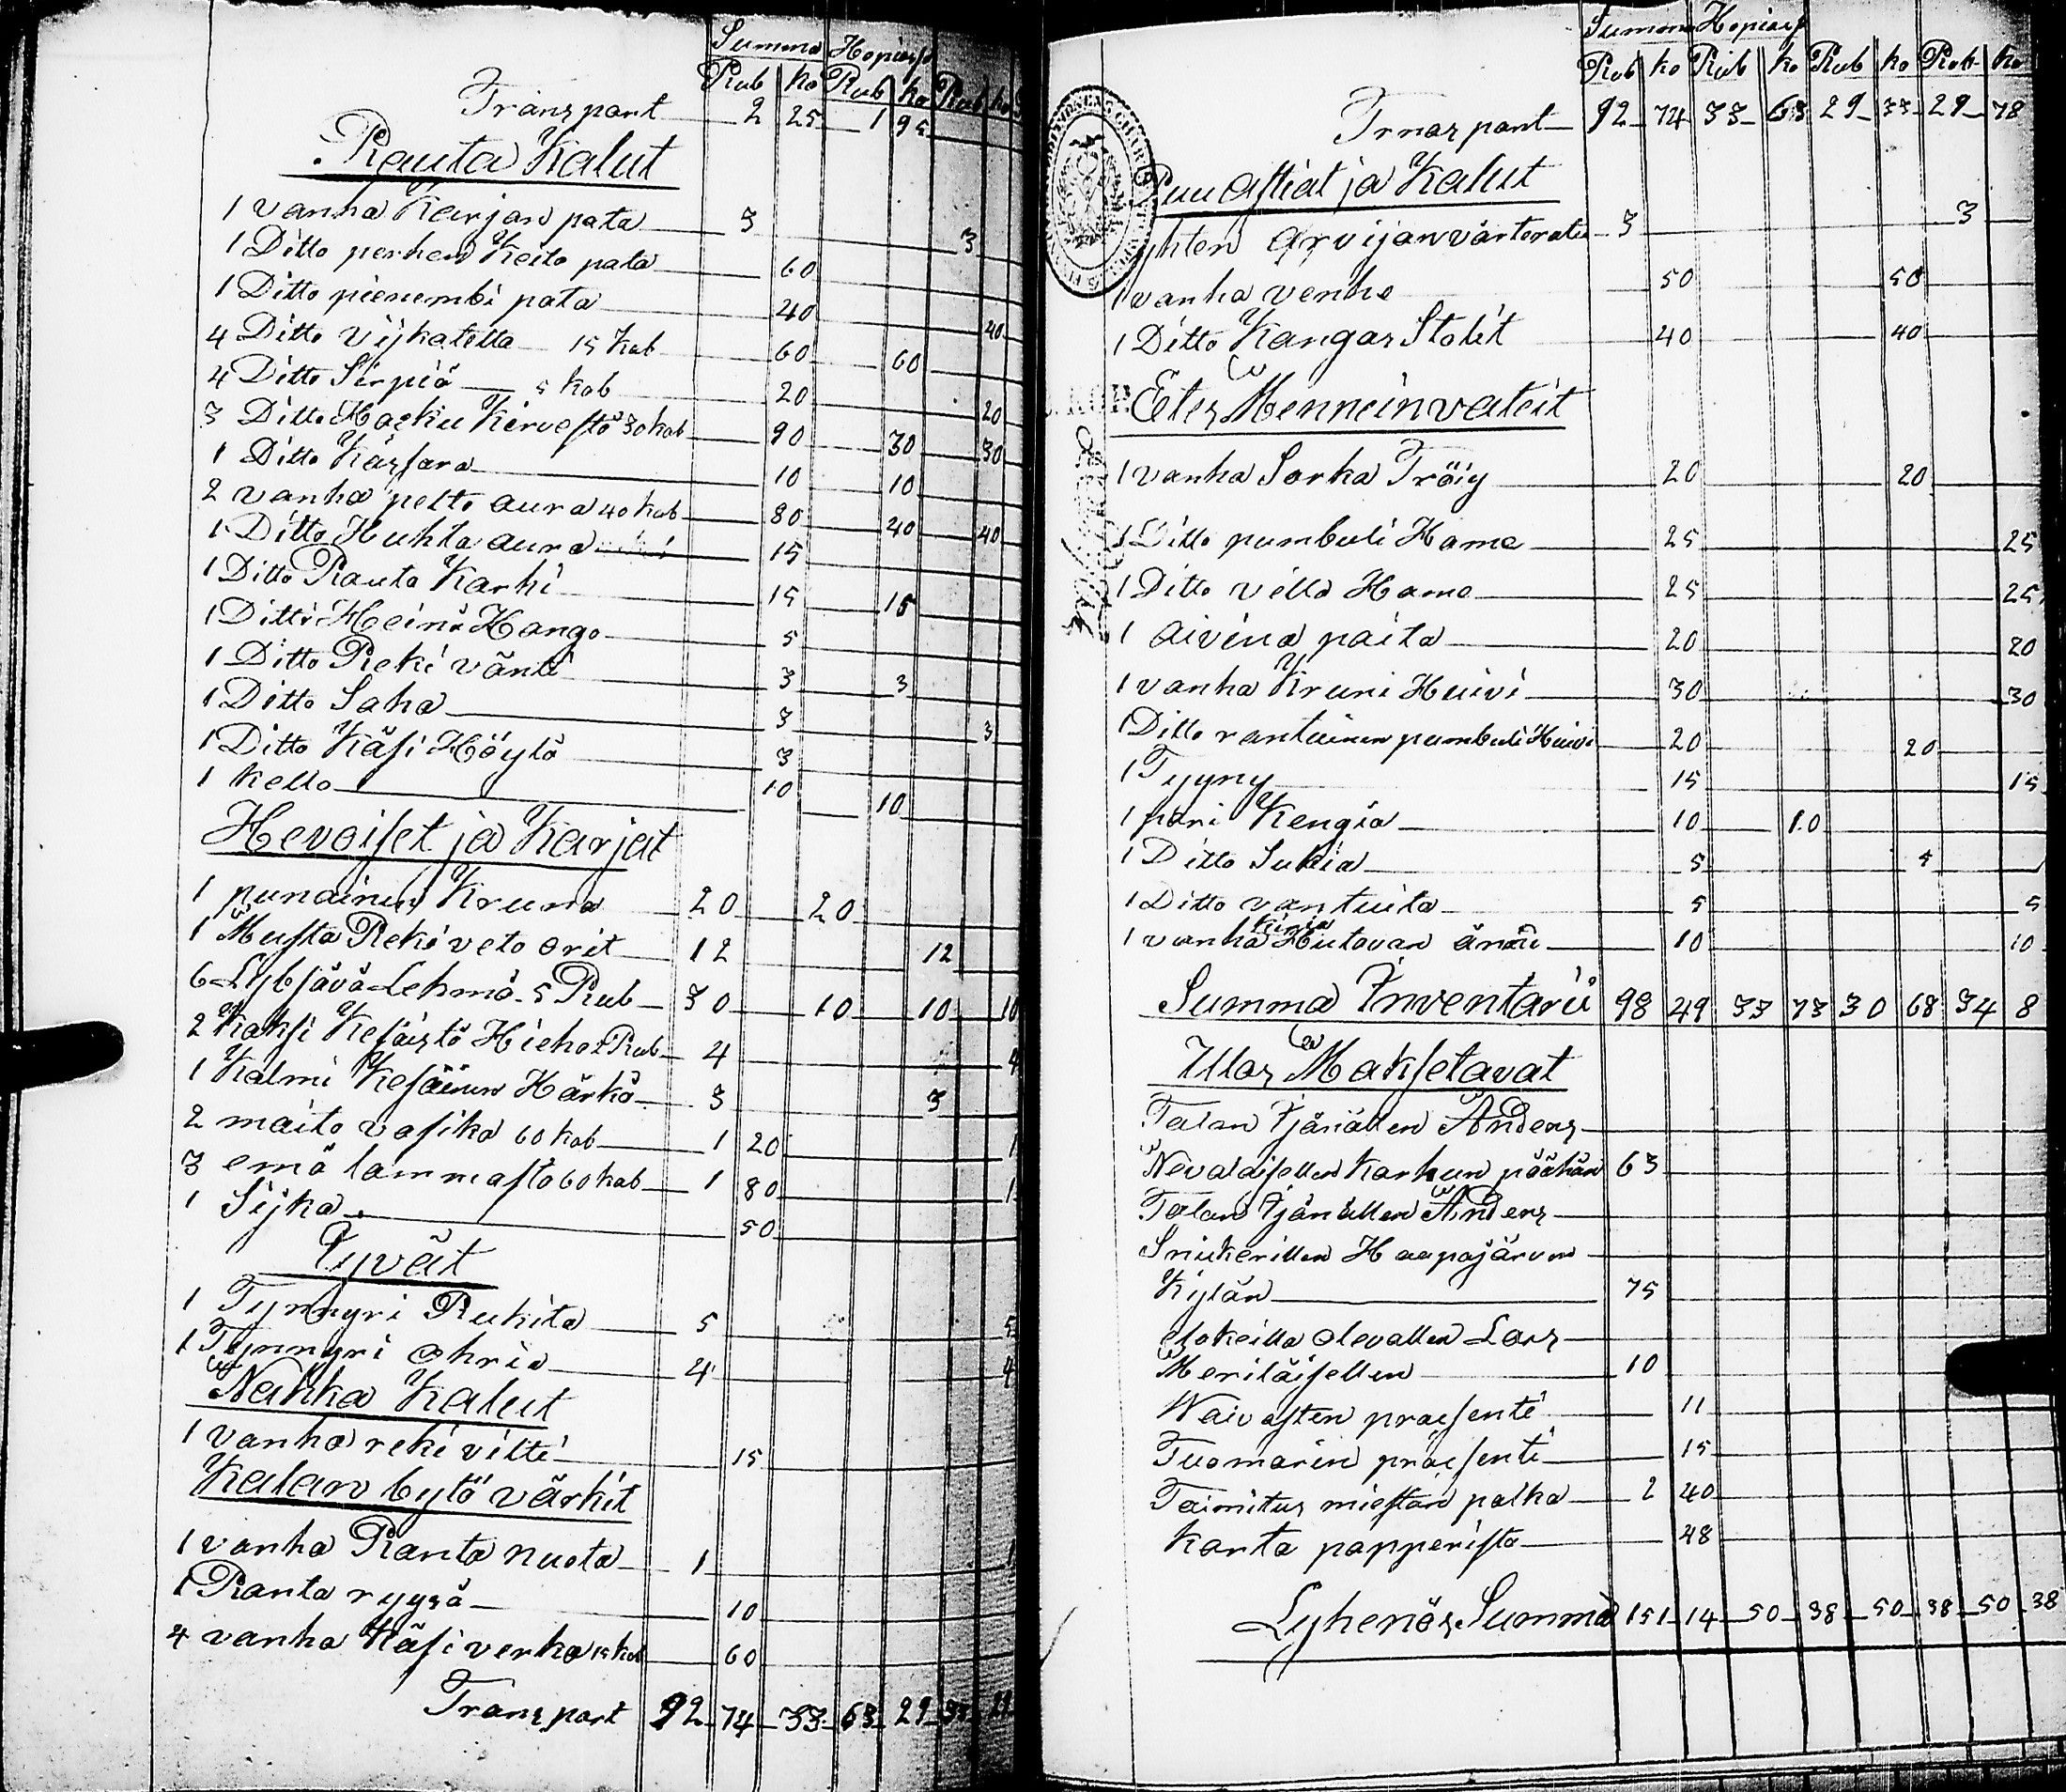 Summa Hopiass
Rub ko Rub ko Rub ko
Transport 2 25 1 95
Rauta Kalut
1 vanha Karjan pata 3 3
1 Ditto perhen Keito pata 60
1 Ditto pienembi pata 40 40
4 Ditto vijkatetta 15 kob 60 60
4 Ditto Sirpiä 5 kob 20 20
3 Ditto Hacku Kirvestö 30 kob 90 30 30
1 Ditto Kässara 10 10
2 vanha pelto aura 40 kob 80 40 40
1 Ditto Huhta aura 15
1 Ditto Rauta Karhi 15 15
1 Ditto Heinä Hango 5
1 Ditto Reki vänti 3 3
1 Ditto Saha 3 3
1 Ditto Käsi Höylö 3
1 kello 10 10
Hevoiset ja Karjat
1 punainen Kruna 20 20
1 Musta Reki veto orit 12 12
6 Lybsävä Lehmä 5 Rub 30 10 10 10
2 Kaksi Kesäistö Hieho 2 Rub 4 4
1 Kalmi Kesäinen Härkä 3 3
2 maito vasika 60 kob 1 20 1
3 emä lammasta 60 kob 1 80 1
1 Sijka 50
Jyvät
1 Tynnyri Rukita 5 5
1 Tynnyri ohria 4 4
Nahka Kalut
1 vanha reki viltti 15
Kalan bytö värkit
1 vanha Ranta nuota 1 1
1 Ranta rysä 10
4 vanha Käsi verko 15 kob 60
Transport 92 74 33 63 29 33
Summa Hopiass
Rub ko Rub ko Rub ko Rub ko
Trnasport 92 74 33 63 29 33 29 78
Puu Astiat ja Kalut
yhten arvijan värterata 3 3
1 vanha venhe 50 50
1 Ditto Kangas Stolit 40 40
Eies Mennein vateit
1 vanha Sarka Tröiy 20 20
1 Ditto pumbuli Hame 25 25
1 Ditto villa Hame 25 25
1 aivina paita 20 20
1 vanha Kruni Huivi 30 30
1 Ditto rantuinen pumbuli Huivi 20 20
1 Tyyny 15 15
1 pari Kengiä 10 10
1 Ditto Sukia 5 5
1 Ditto vantuita 5 5
1 vanha kinia Hutavan änän 10 10
Summa Inventarii 98 49 33 73 30 68 34 8
Ulos Maksetavat
Talan Isänällen Anders
Nevalaisellen Karhun päähän 63
Talan Isänällen Anders
Snikerillen Haapajärven
Kylän 75
elokeilla olevallen Lars
Meriläisellen 10
Waivasten praesenti 11
Tuomarin praesenti 15
Toimitus miestän palka 2 40
Karta papperista 48
Lyhenös Summa 151 14 50 38 50 38 50 38